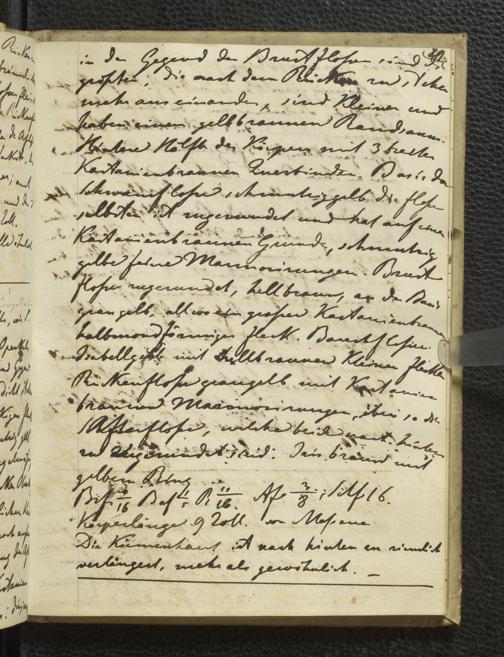 in der Gegend der Brustflossen sind die
größten, die nach dem Rücken zu, stehen
mehr aus einander, sind kleiner und
haben einen gelbbraunen Randsaum.
Hintere Hälfte des Körpers mit 3 breiten
Kastanienbraunen Querbinden. Basis der
Schwanzflosse schmutziggelb die flosse
selbst ist zugerundet und hat auf einem
Kastanienbraunen Grunde, schmutzig
gelbe feine Marmorirungen. Brust
flosse zugerundet, hellbraun, an der Basis
graugelb, allwo ein großer Kastanienbrauner
halbmondförmiger fleck. Bauchflosse
Isabellgelb mit hellbraunen kleinen flecken
Rückenflosse graugelb mit Kastanien
braunen Marmorirungen, eben so die
Afterflosse, welche beide nach hinten
zu zugerundet sind. Iris braun mit
gelbem Ring
16. Af 3/8; 16.
Körperlänge 9 Zoll. von Messina
Die Kiemenhaut ist nach hinten zu ziemlich
verlängert, mehr als gewöhnlich. —